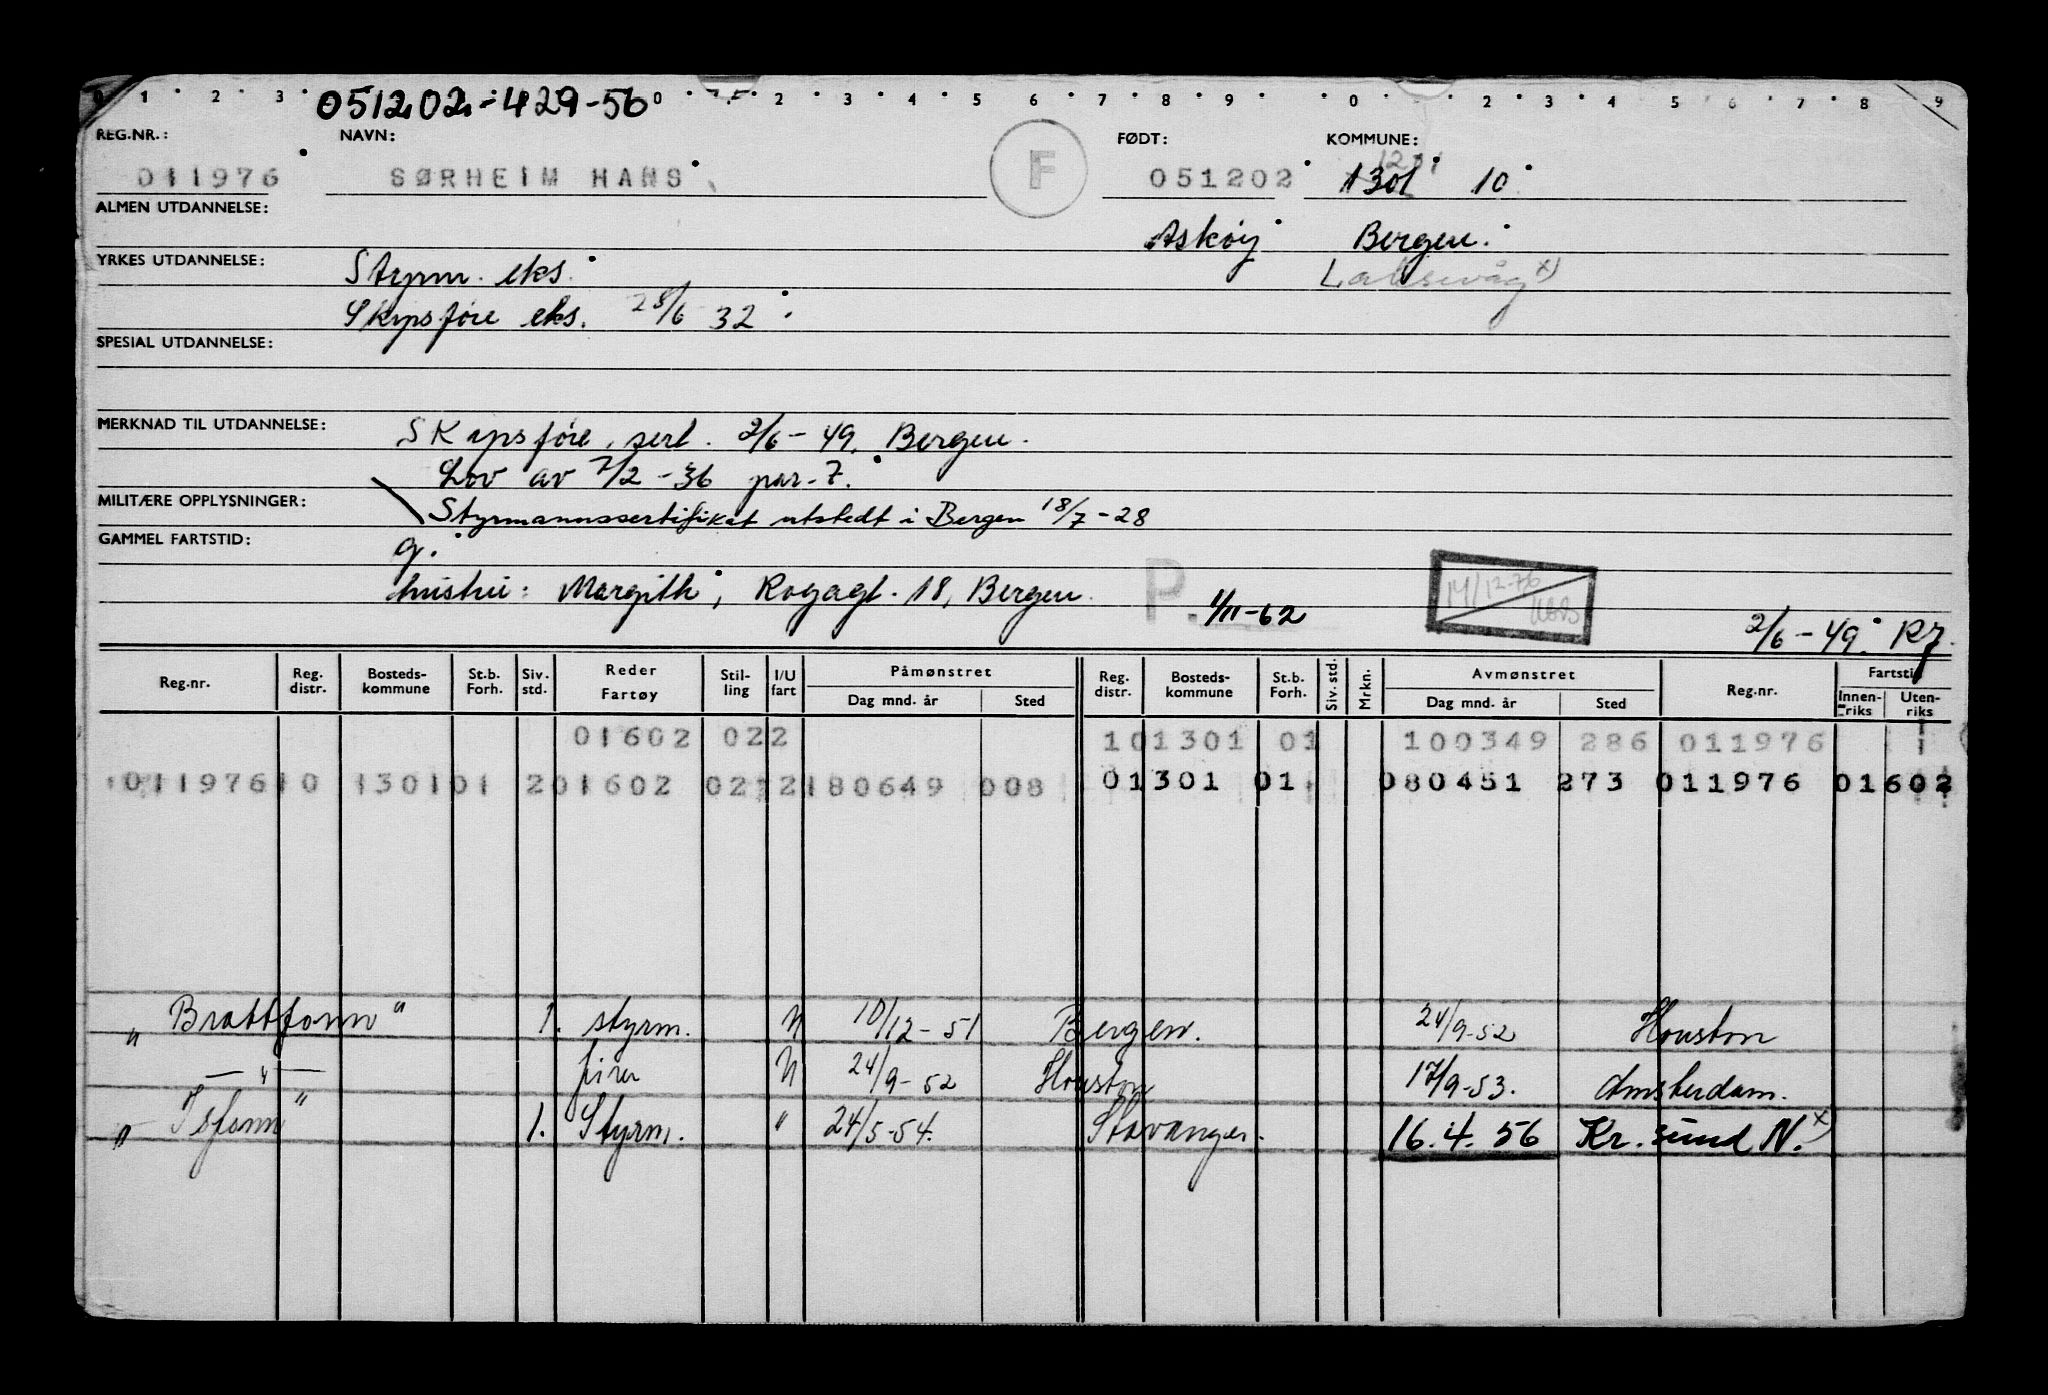 051202-429-56
REG.NR.: NAVN: FØDT: KOMMUNE:
011976 SØRHEIM HANS F 051202 1301 10
ALMEN UTDANNELSE:
Askøy Bergen
YRKES UTDANNELSE: Styrm. eks. Laksevåg x)
Skipsføre eks. 28/6 32
SPESIAL UTDANNELSE:
MERKNAD TIL UTDANNELSE: Skipsføre sert. 2/6-49. Bergen.
Lov av 7/2-36 par. 7.
MILITÆRE OPPLYSNINGER: Styrmannssertifikat utstedt i Bergen 18/7-28
GAMMEL FARTSTID: g.
hustru: Margith, Bergen. P. 1/11-62
2/6-49.
Reg.nr. Reg. distr. Bosteds-kommune St.b. Forh. Siv. std. Reder Fartøy Stil-ling I/U fart Påmønstret Dag mnd. år Sted Reg. distr. Bosteds-kommune St.b. Forh. Siv. std. Mrkn. Avmønstret Dag mnd. år Sted Reg.nr. Fartstid Innen-riks Uten-riks
01602 022 101301 01 100349 286 011976
011976 10 1301 01 2 01602 022 2 180649 008 01301 01 080451 273 011976 01602
"Brattfonn" 1. styrm. U 10/12-51 Bergen. 24/9-52 Houston
—"— fører U 24/9-52 Houston 17/9-53. Amsterdam.
"Isfonn" 1. Styrm. " 24/5-54. Stavanger. 16.4.56 Kr. sund N. x)